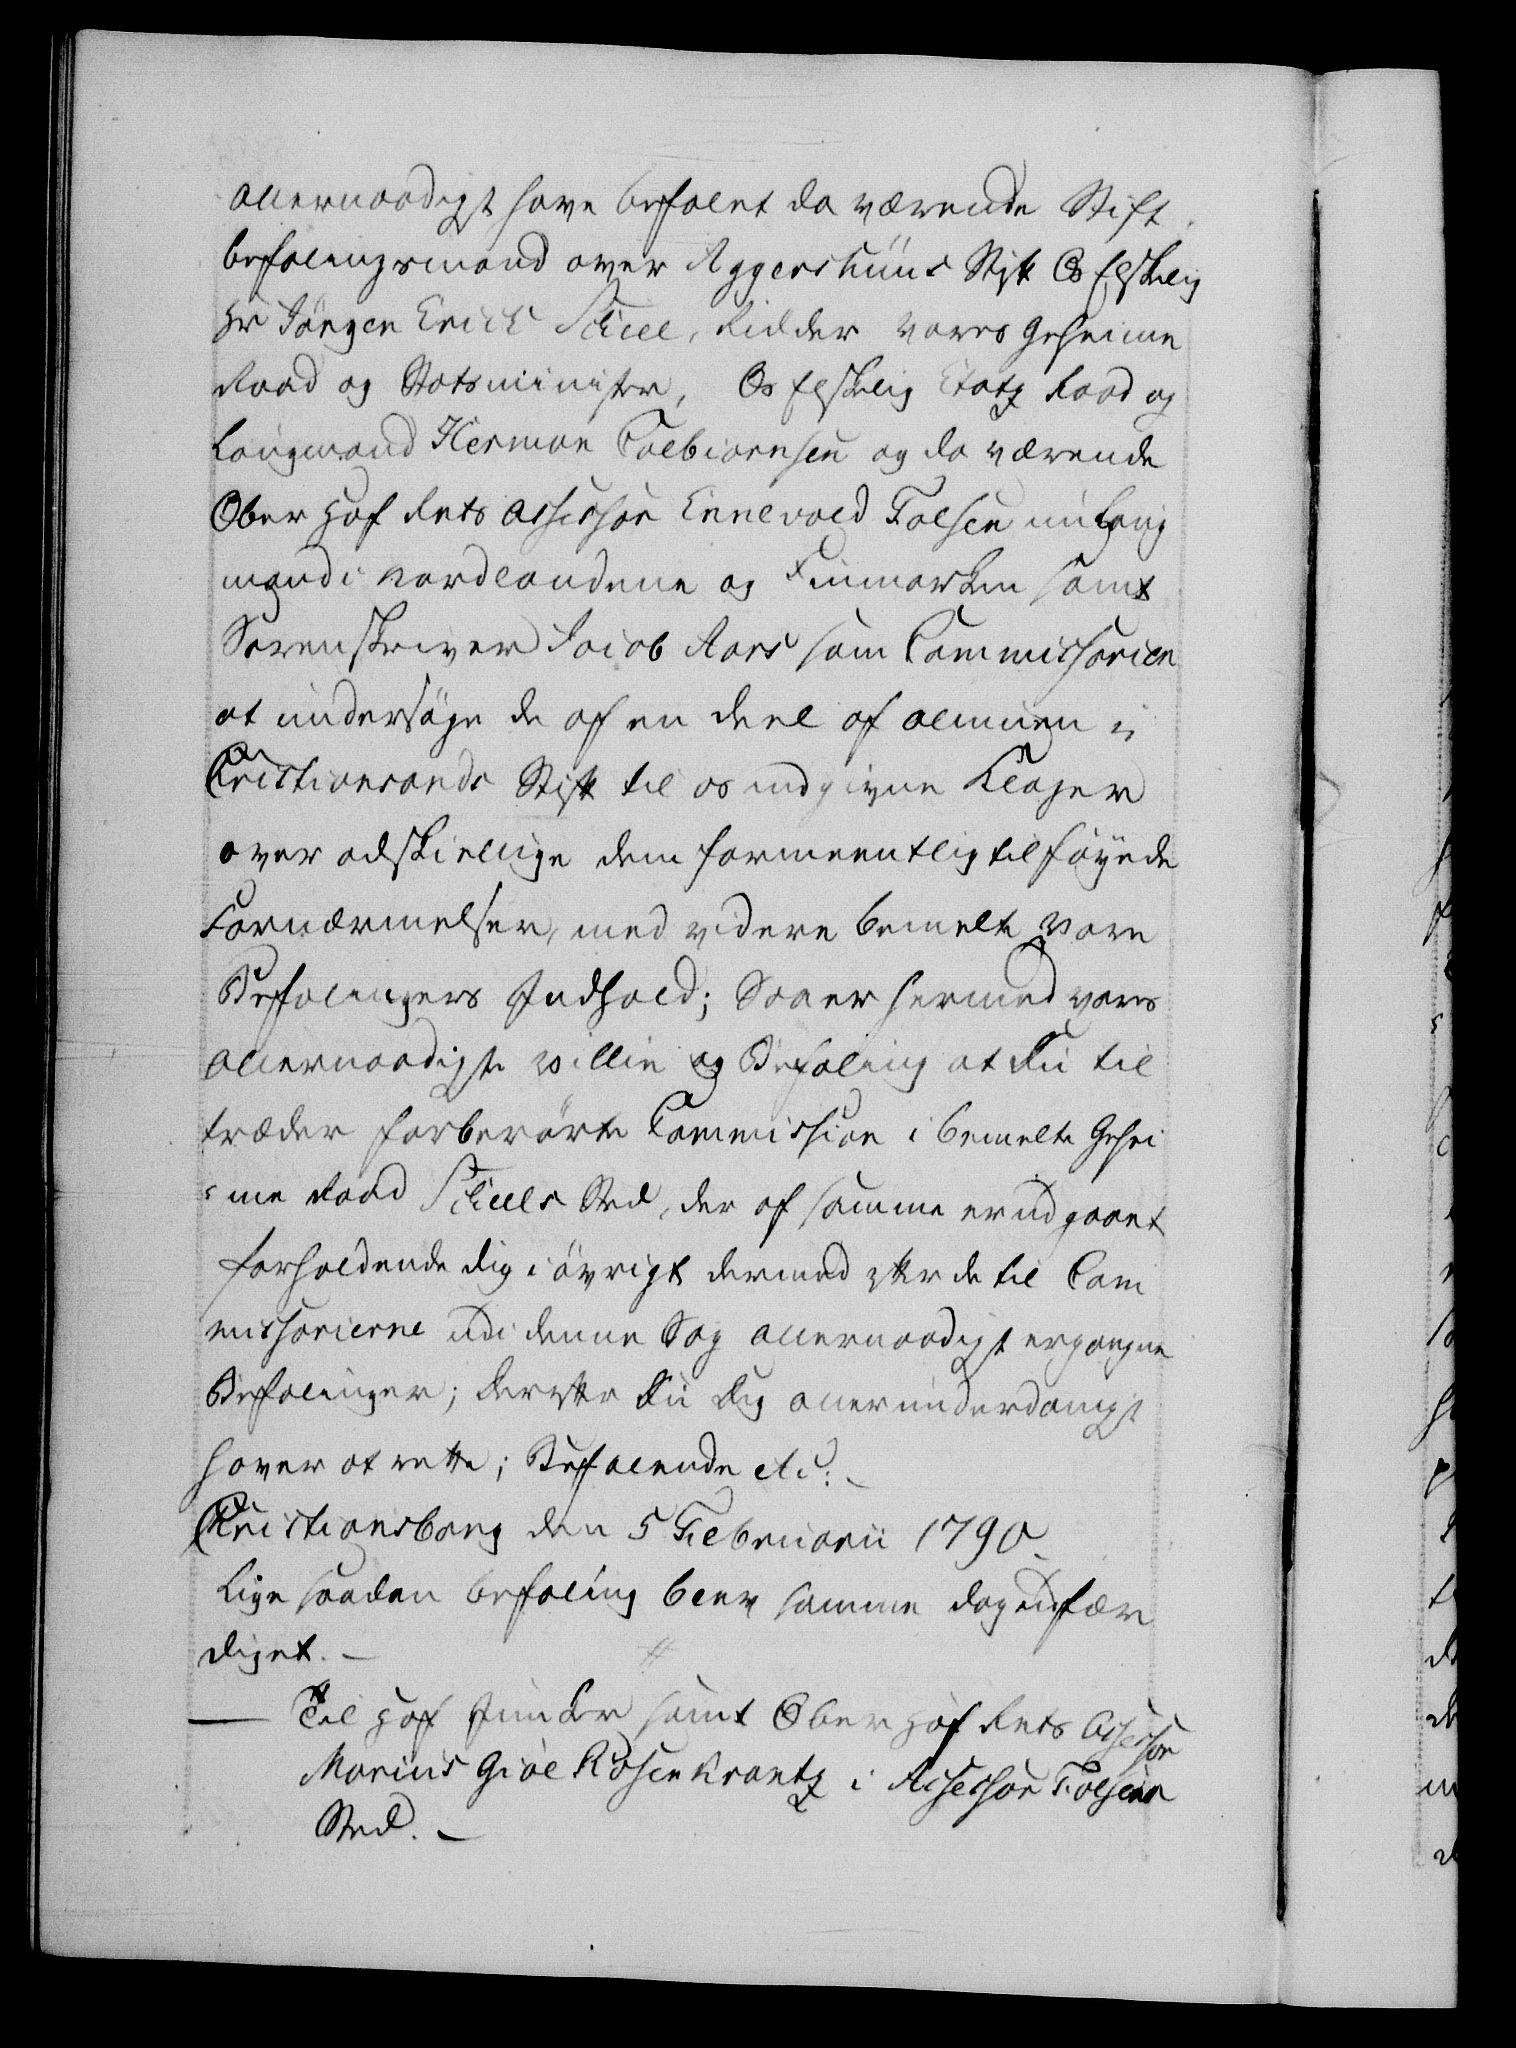 allernaadigst have befalet da værende Stift
befalingsmand over Aggershuus Stift Os Elskelig
Hr Jörgen Erick Scheel, Ridder vores Geheime
Raad og Statsminister, Os Elskelig Etatz Raad og
Laugmand Herman Colbiørnsen og da værende
Ober Hof Rets Assessor Ennevold Falsen nu Laug
mand i Nordlandene og Finmarken samt
Sorenskriver Jacob Aars som Commissarier
at undersöge de af en deel af almuen i
Christiansands Stift til os indgivne Klager
over adskiellige dem formeentlig tilföyede
Fornærmelser, med videre bemelte vore
Befalingers Indhold; Saa er hermed vores
allernaadigste villie og Befaling at Du til
træder forberörte Commission i bemelte Gehei
=me Raad Scheels Sted, der af samme er udgaaet
forholdende dig i övrigt dermed efter de til Com
missarierne udi denne Sag allernaadigst ergangne
Befalinger; derefter Du dig allerunderdanigst
haver at rette; Befalende etc:
Christiansborg den 5 Februarii 1790
Lige saadan befaling blev samme dag udfær
diget.
Til Hof Junker samt Ober Hof Rets Assessor
Marius Giöe Rosenkrantz i Assessor Falsens
Sted.